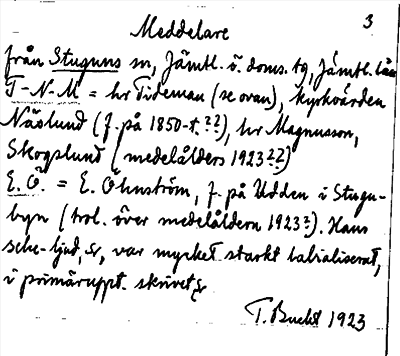 3
Meddelare
från Stuguns sn, Jämtl. ö. doms. tg, Jämtl. län
T-N-M = hr Tideman (se ovan), kyrkvärden
Näslund (f. på 1850-t.??), hr Magnusson,
Skogslund (medelålders 1923??)
E. Ö. = E. Öhnström, f. på Udden i Stugu-
byn (trol. över medelåldern 1923?). Hans
sche-ljud, var mycket starkt labialiserat,
i primäruppt. skrivet
T. Bucht 1923